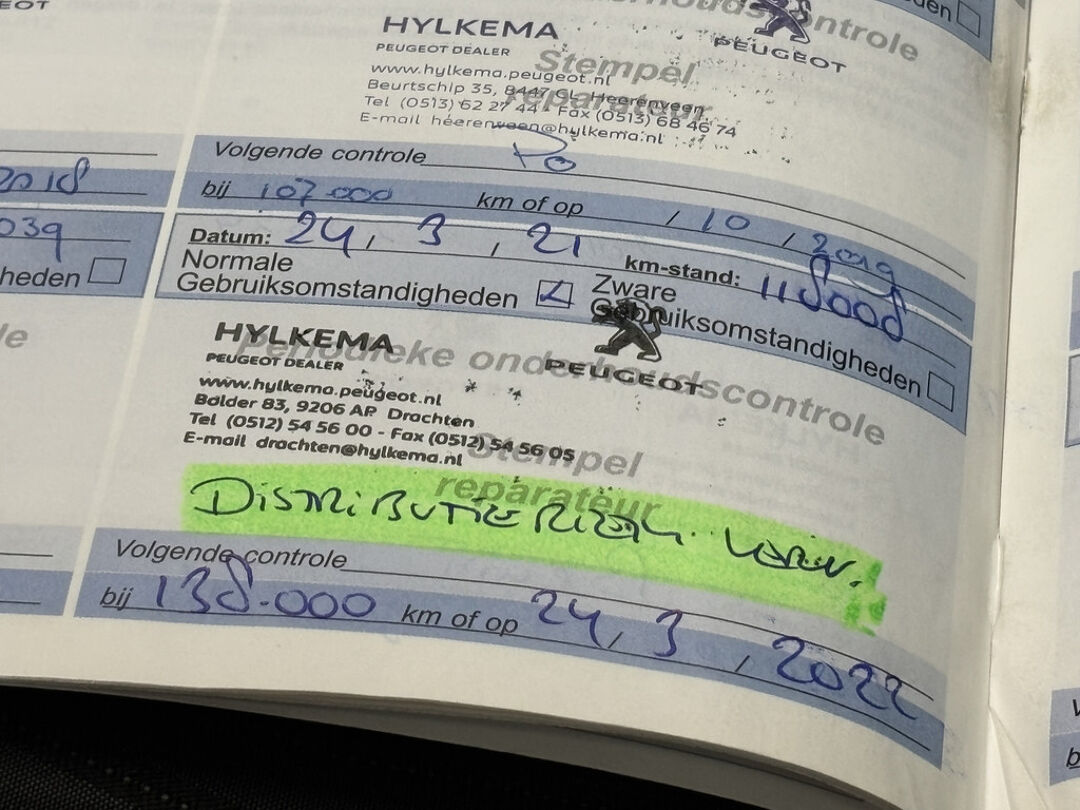 EOT
2018
039
heden
le
onderhoudscontrole
HYLKEMA
PEUGEOT DEALER
PEUGEOT
Stempel
reparateur
www.hylkema.peugeot.nl
Beurtschip 35, 8447 CL Heerenveen
Tel (0513) 62 27 44 - Fax (0513) 68 46 74
E-mail heerenveen@hylkema.nl
Volgende controle
bij 107.000 km of op / 10 / 2019
Datum: 24 / 3 / 21 km-stand: 118008
Normale
Gebruiksomstandigheden
Zware
Gebruiksomstandigheden
HYLKEMA
PEUGEOT DEALER
PEUGEOT
Periodieke onderhoudscontrole
www.hylkema.peugeot.nl
Bolder 83, 9206 AP Drachten
Tel (0512) 54 56 00 - Fax (0512) 54 56 05
E-mail drachten@hylkema.nl
Stempel
reparateur
DISTRIBUTIE RIEM
Volgende controle
bij 138.000 km of op 24 / 3 / 2022